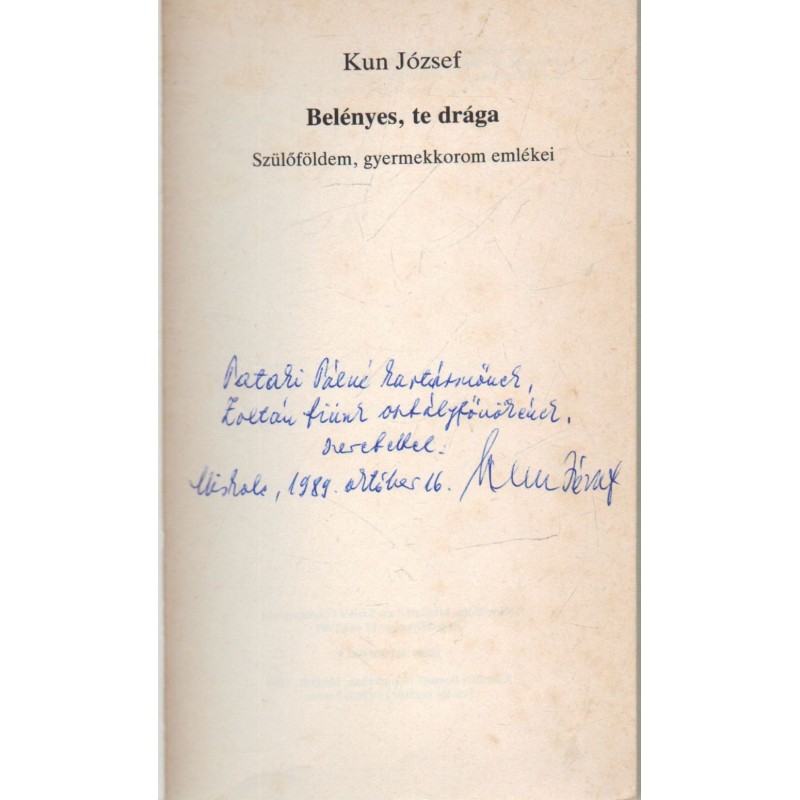 Kun József
Belényes, te drága
Szülőföldem, gyermekkorom emlékei
Pataki Pálné kartársnőnek,
Zoltán fiúnk osztályfőnökének,
szeretettel:
Miskolc, 1989. október 16. Kun József